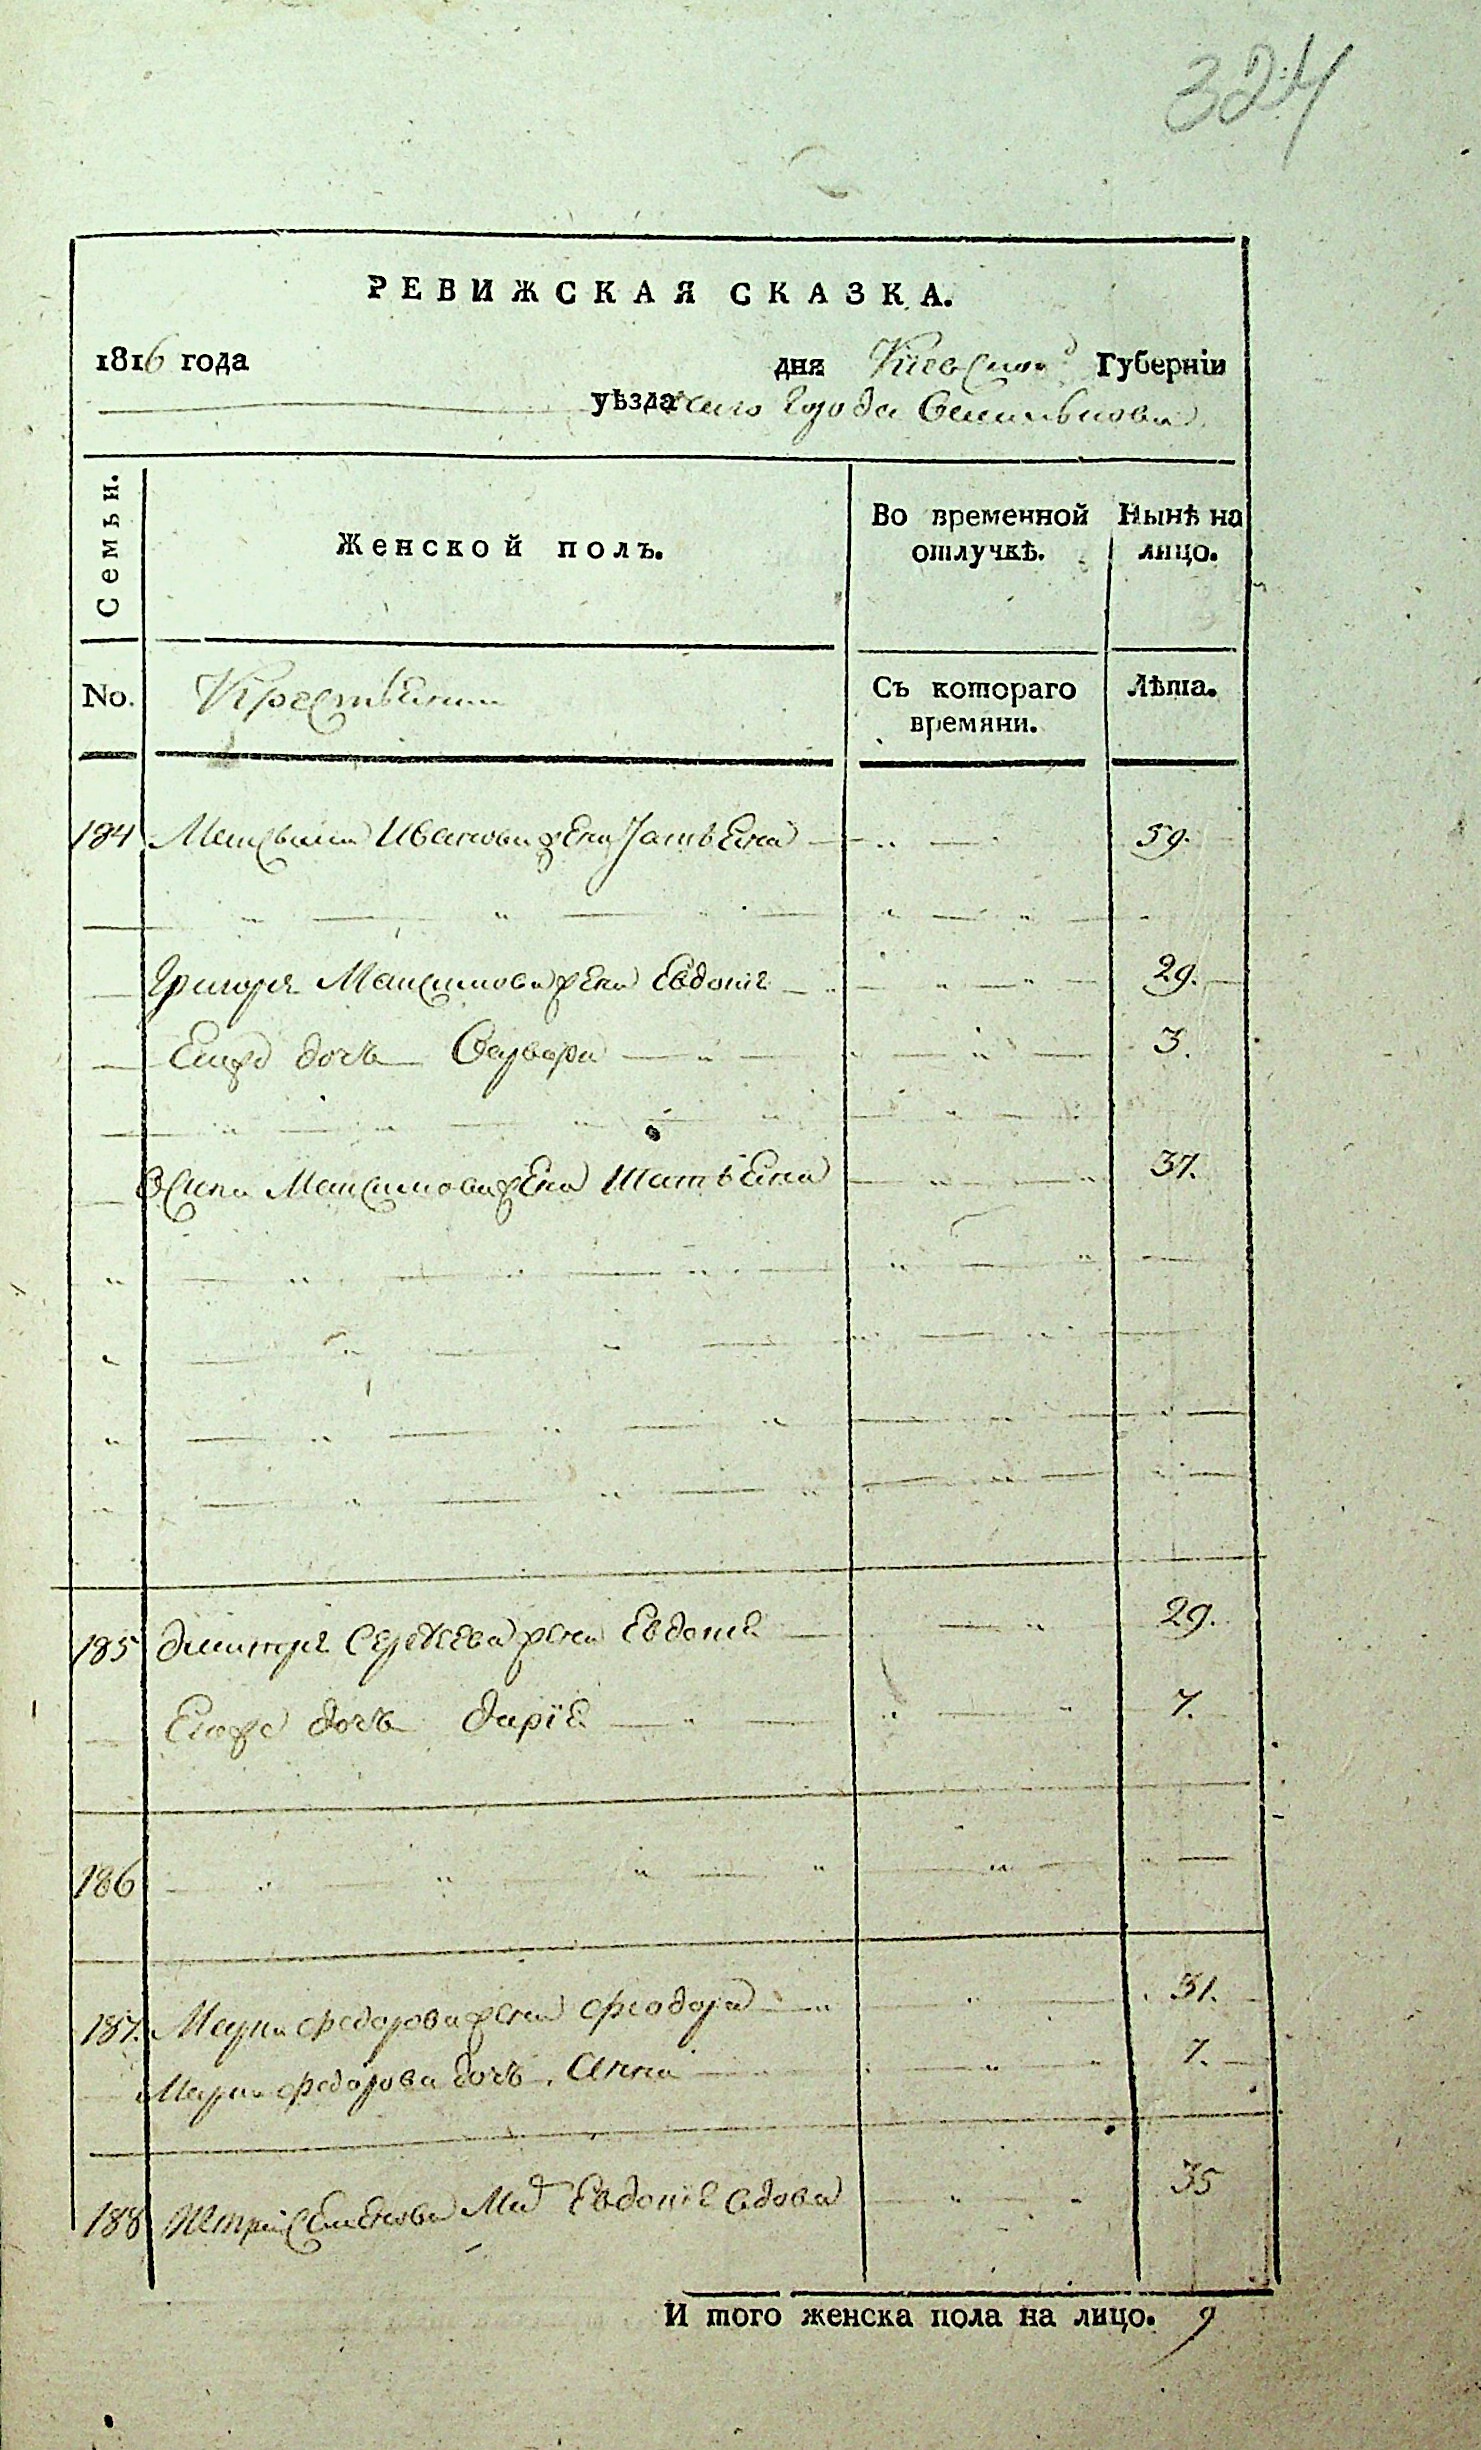 324
РЕВИЖСКАЯ СКАЗКА.
1816 года дня Киевской Губерніи
уѣзда города Василькова
Семьи. Женской полъ. Во временной отлучкѣ. Нынѣ на лицо.
No. Крестьянки Съ котораго времяни. Лѣта.
184 Максима Иванова жена Татьяна 59.
Григорія Максимова жена Евдокія 29.
Его дочь Варвара 3.
Осипа Максимова жена Татьяна 37.
185 Дмитрія Сергѣева жена Евдокія 29.
Его дочь Дарія 7.
186
187. Марка Федорова жена Феодора 31.
Марка Федорова дочь Анна 7.
188 Петра Семенова Евдокія вдова 35
И того женска пола на лицо. 9